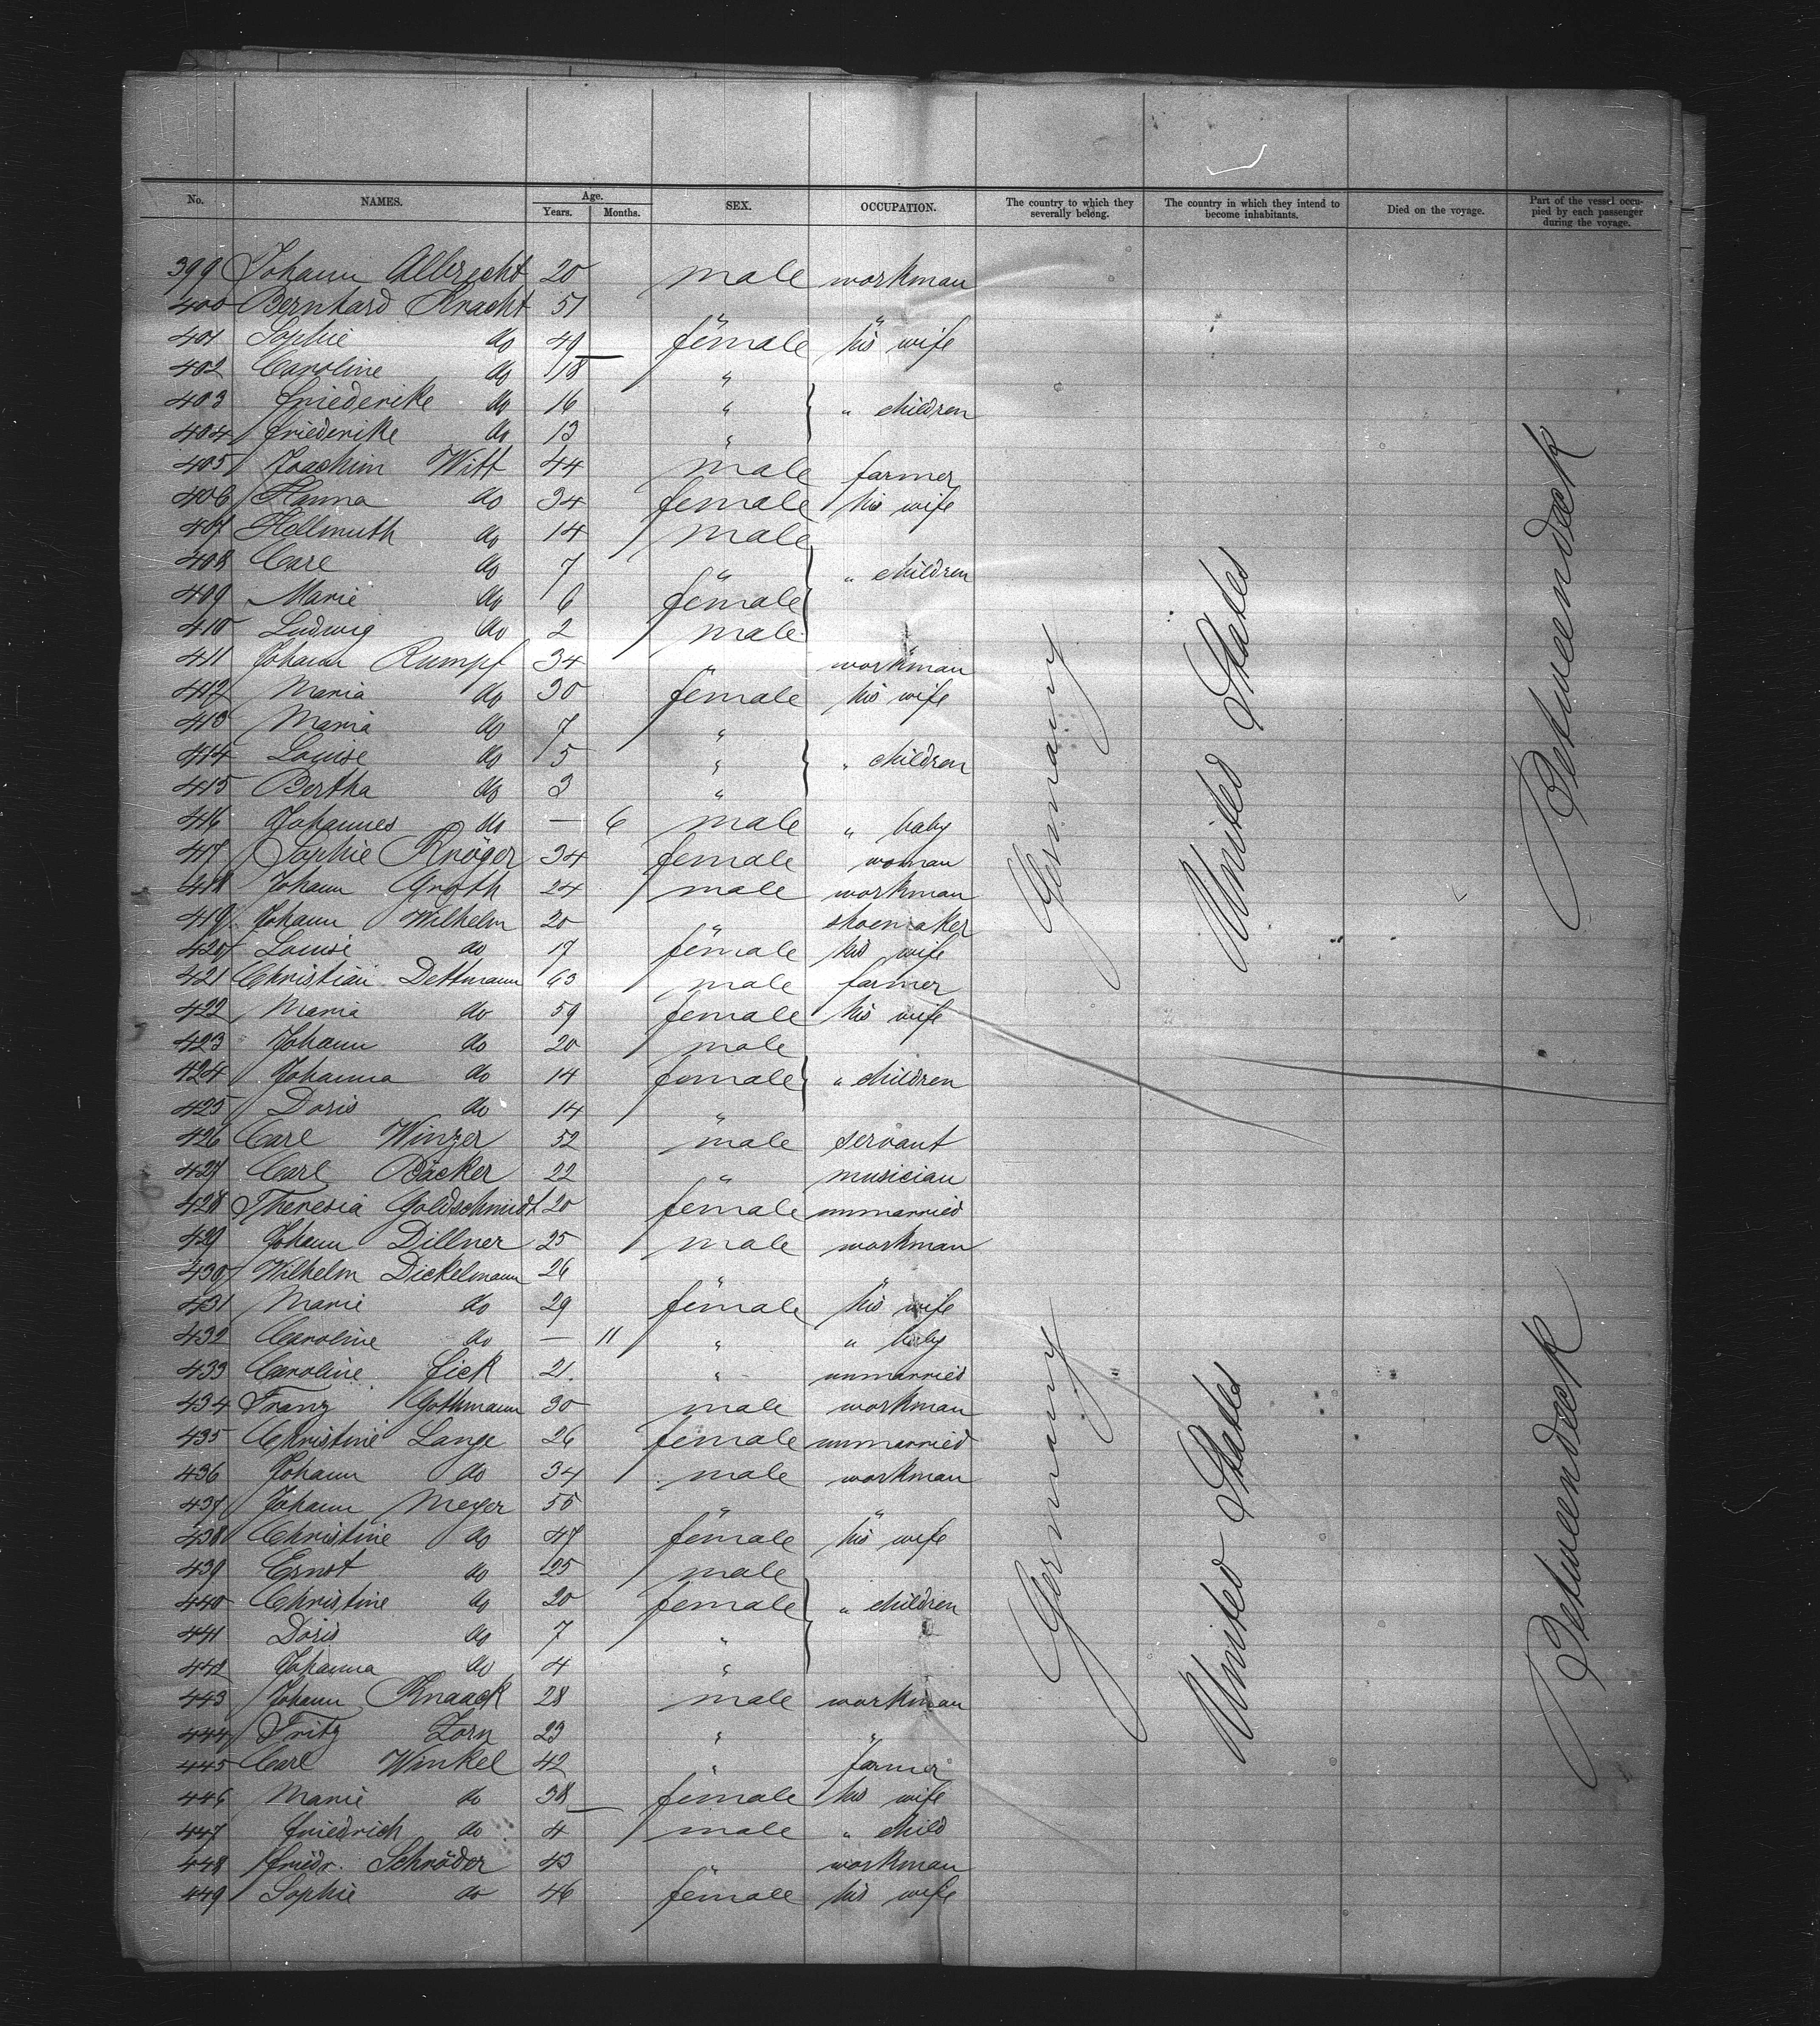 No. NAMES. Age. Years. Months. SEX. OCCUPATION. The country to which they severally belong. The country in which they intend to become inhabitants. Died on the voyage. Part of the vessel occupied by each passenger during the voyage.
399 Johann Albrecht 20 male workman
400 Bernhard Knacht 51 " "
401 Sophie do 49 female his wife
402 Caroline do 18 "
403 Friederike do 16 " " children
404 Friederike do 13 "
405 Joachim Witt 44 male farmer
406 Hanna do 34 female his wife
407 Hellmuth do 14 male
408 Carl do 7 " " children
409 Marie do 6 female
410 Ludwig do 2 male
411 Johann Rumpf 34 " workman
412 Maria do 30 female his wife
413 Maria do 7 "
414 Louise do 5 " " children
415 Bertha do 3 "
416 Johannes do — 6 male " baby
417 Sophie Kröger 34 female woman
418 Johann Groth 24 male workman
419 Johann Wilhelm 20 " shoemaker
420 Louise do 17 female his wife
421 Christian Dettmann 63 male farmer
422 Maria do 59 female his wife
423 Johann do 20 male
424 Johanna do 14 female " children
425 Doris do 14 "
426 Carl Winzer 52 male servant
427 Carl Bäcker 22 " musician
428 Theresia Goldschmidt 20 female unmarried
429 Johann Dillner 25 male workman
430 Wilhelm Dickelmann 26 " "
431 Marie do 29 female his wife
432 Caroline do — 11 " " baby
433 Caroline Fick 21. " unmarried
434 Franz Gothmann 30 male workman
435 Christine Lange 26 female unmarried
436 Johann do 34 male workman
437 Johann Meyer 55 " "
438 Christine do 47 female his wife
439 Ernst do 25 male
440 Christine do 20 female " children
441 Doris do 7 "
442 Johanna do 4 "
443 Johann Knaack 28 male workman
444 Fritz Zorn 23 " "
445 Carl Winkel 42 " farmer
446 Marie do 38 female his wife
447 Friedrich do 4 male " child
448 Friedr. Schröder 43 " workman
449 Sophie do 46 female his wife
Germany
United States
Betweendeck
Germany
United States
Betweendeck